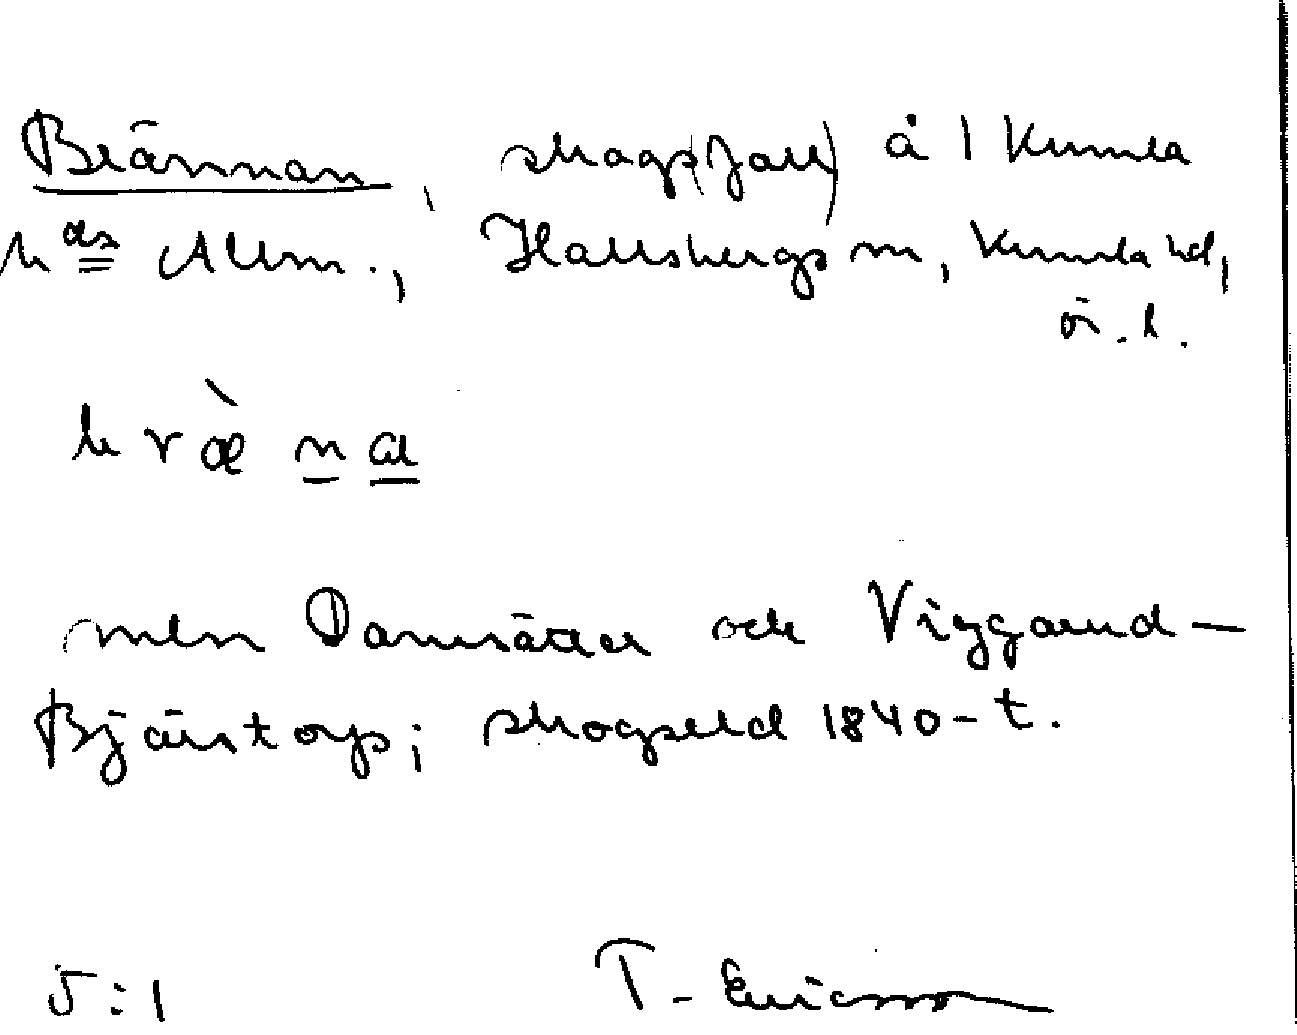 Brännan, skogs(fall) å 1 Kumla
hds Allm., Hallsbergs sn, Kumla hd,
ör. l.
bræ̀na
mlm Damsätter och Viggarud-
Bjärstorp; skogseld 1840-t.
5:1 T. Ericsson